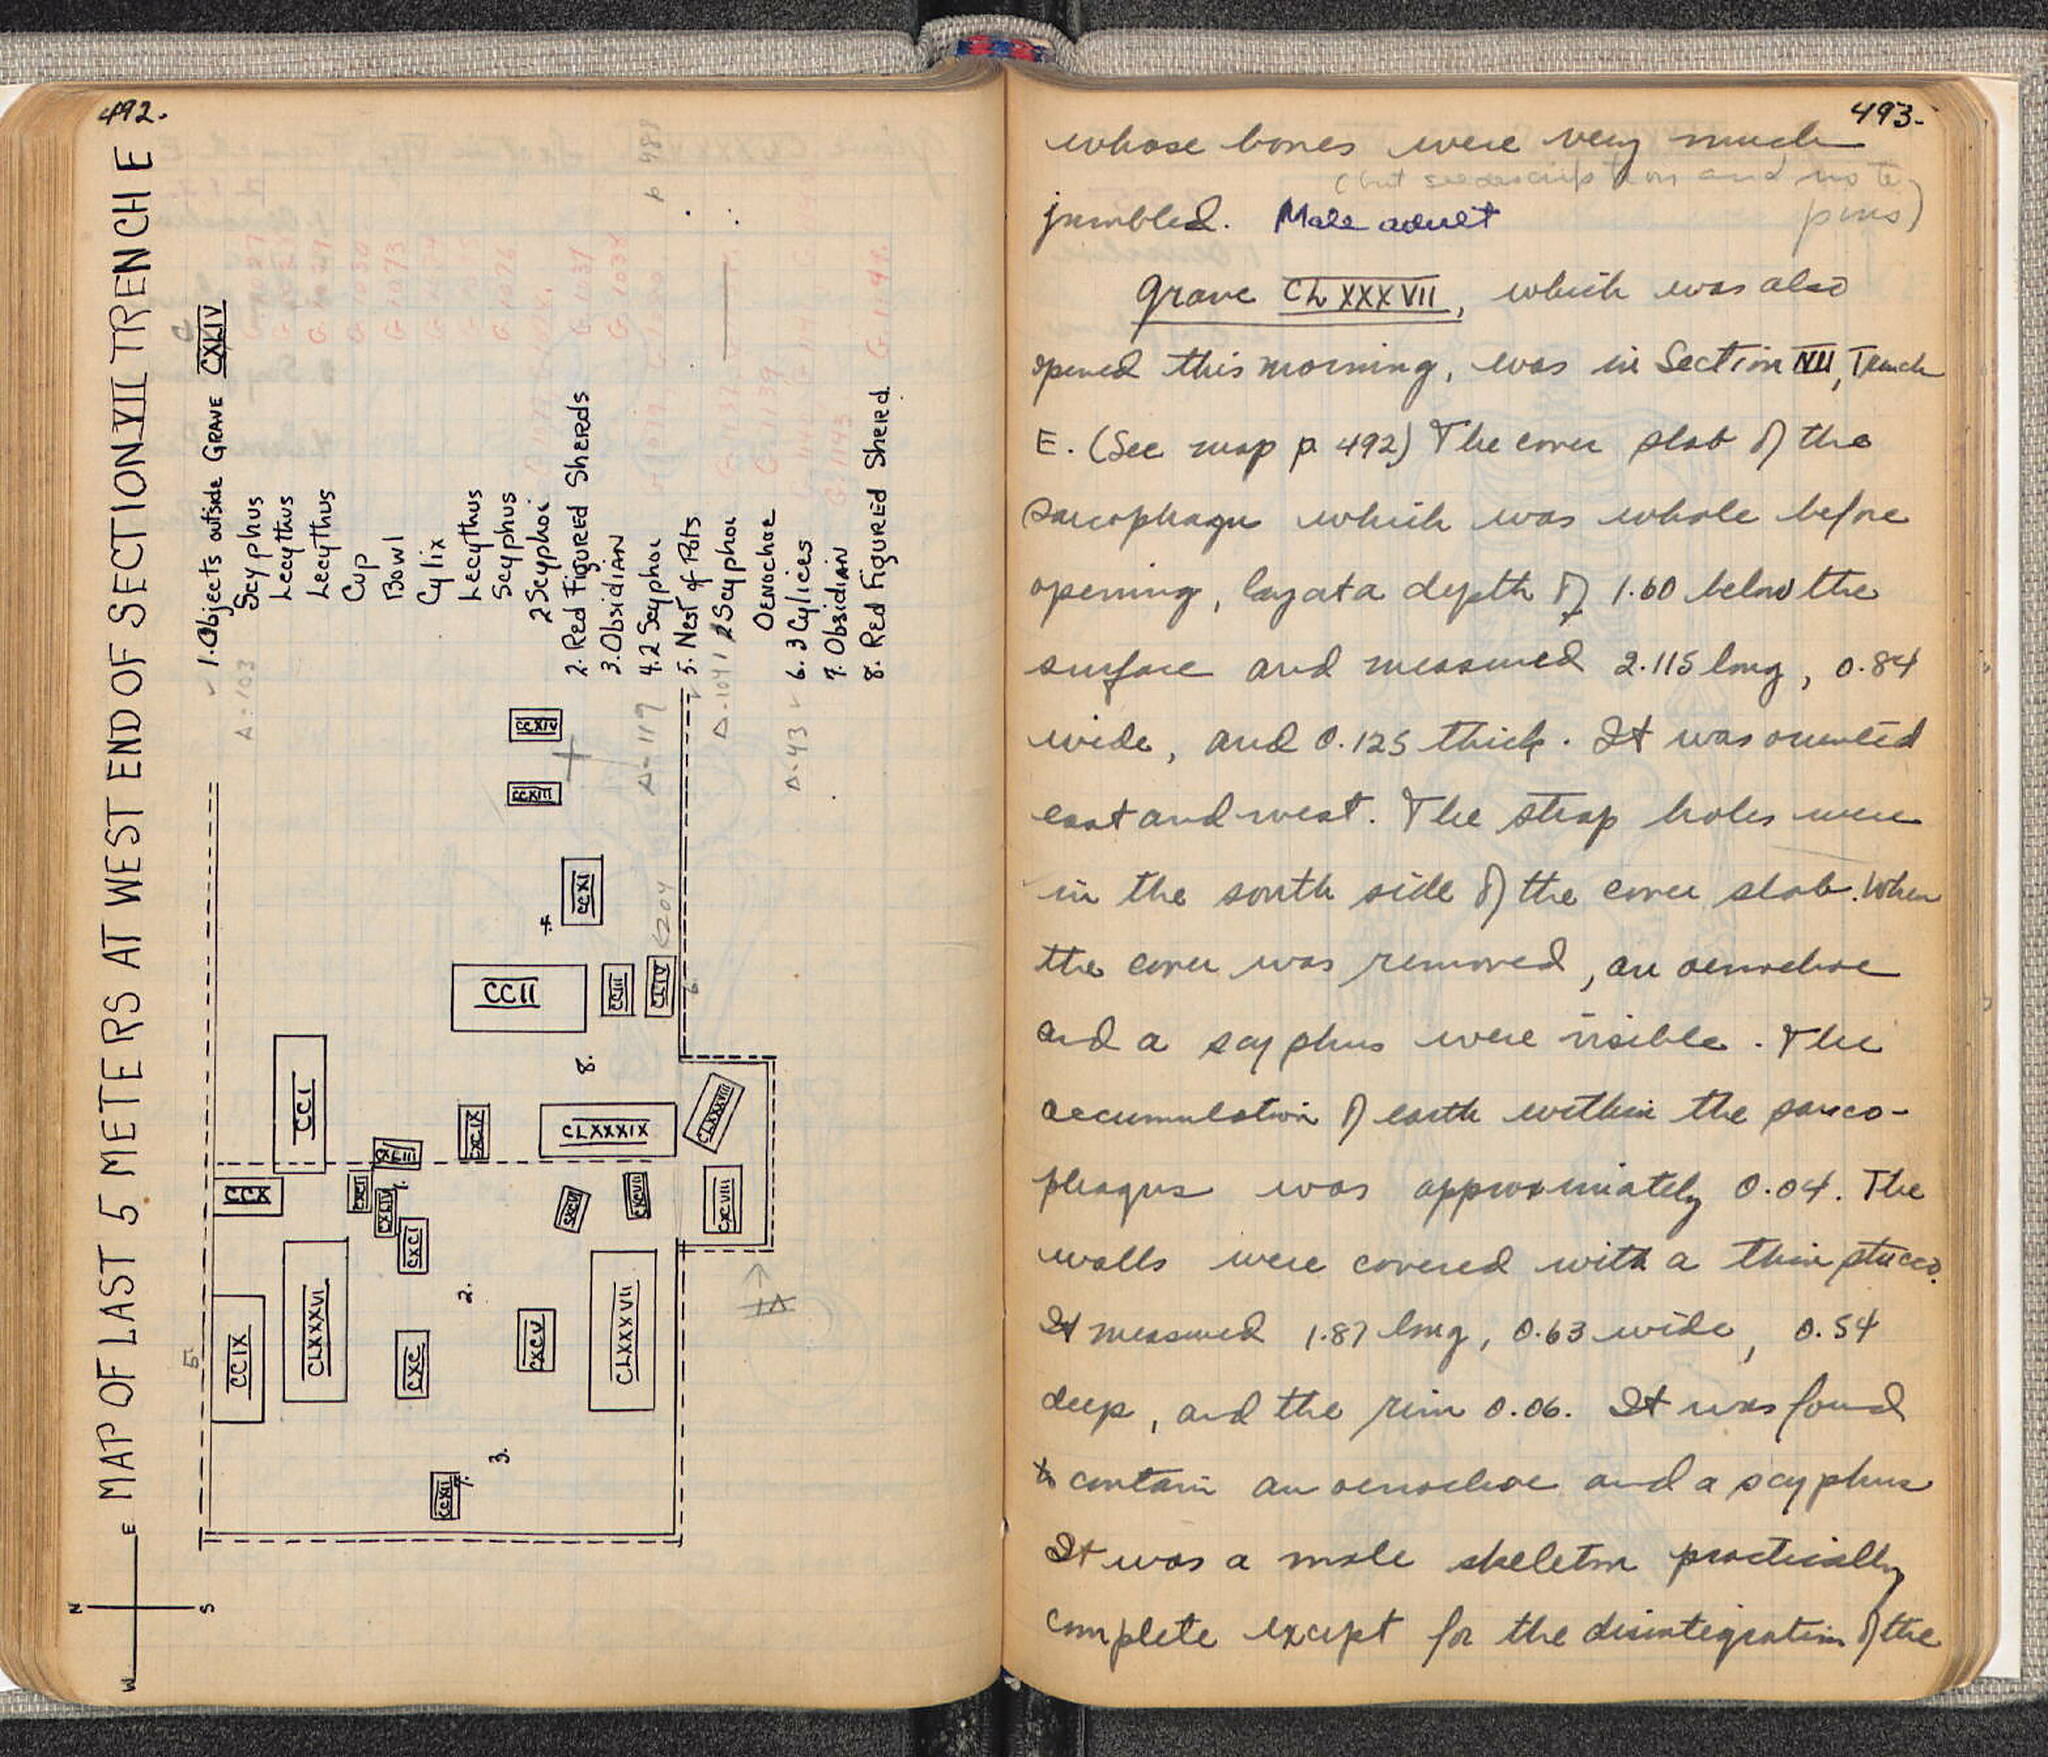 492.
MAP OF LAST 5 METERS AT WEST END OF SECTION VII TRENCH E
N
E
S
W
1. Objects outside GRAVE CXLIV
Scyphus
Lecythus
Lecythus
Cup
Bowl
Cylix
Lecythus
Scyphus
2 Scyphoi
2. Red Figured Sherds
3. Obsidian
4. 2 Scyphoi
5. Nest of Pots
2 Scyphoi
Oenochoe
6. 3 Cylices
7. Obsidian
8. Red Figured Sherd.
Δ-103
Δ-119
Δ-1041
Δ-43
p 488
CCXIV
CCXIII
CCXI
4.
CCII
CCIII
CCIV
204
6.
CCI
8.
CXCIX
CLXXXIX
CLXXXVIII
CCX
CXCII
CXLIV
1.
CXCI
CXCVI
CXCVII
CXCVIII
5.
CCIX
CLXXXVI
CXC
2.
CXCV
CLXXXVII
CCXII
7.
3.
493.
whose bones were very much
(but see description and note
jumbled. Male adult
pins)
Grave CLXXXVII, which was also
opened this morning, was in Section VII, Trench
E. (See map p. 492) The cover slab of the
sarcophagus which was whole before
opening, lay at a depth of 1.60 below the
surface and measured 2.115 long, 0.84
wide, and 0.125 thick. It was oriented
east and west. The strap holes were
in the south side of the cover slab. When
the cover was removed, an oenochoe
and a scyphus were visible. The
accumulation of earth within the sarco-
phagus was approximately 0.04. The
walls were covered with a thin stucco.
It measured 1.87 long, 0.63 wide, 0.54
deep, and the rim 0.06. It was found
to contain an oenochoe and a scyphus
It was a male skeleton practically
complete except for the disintegration of the